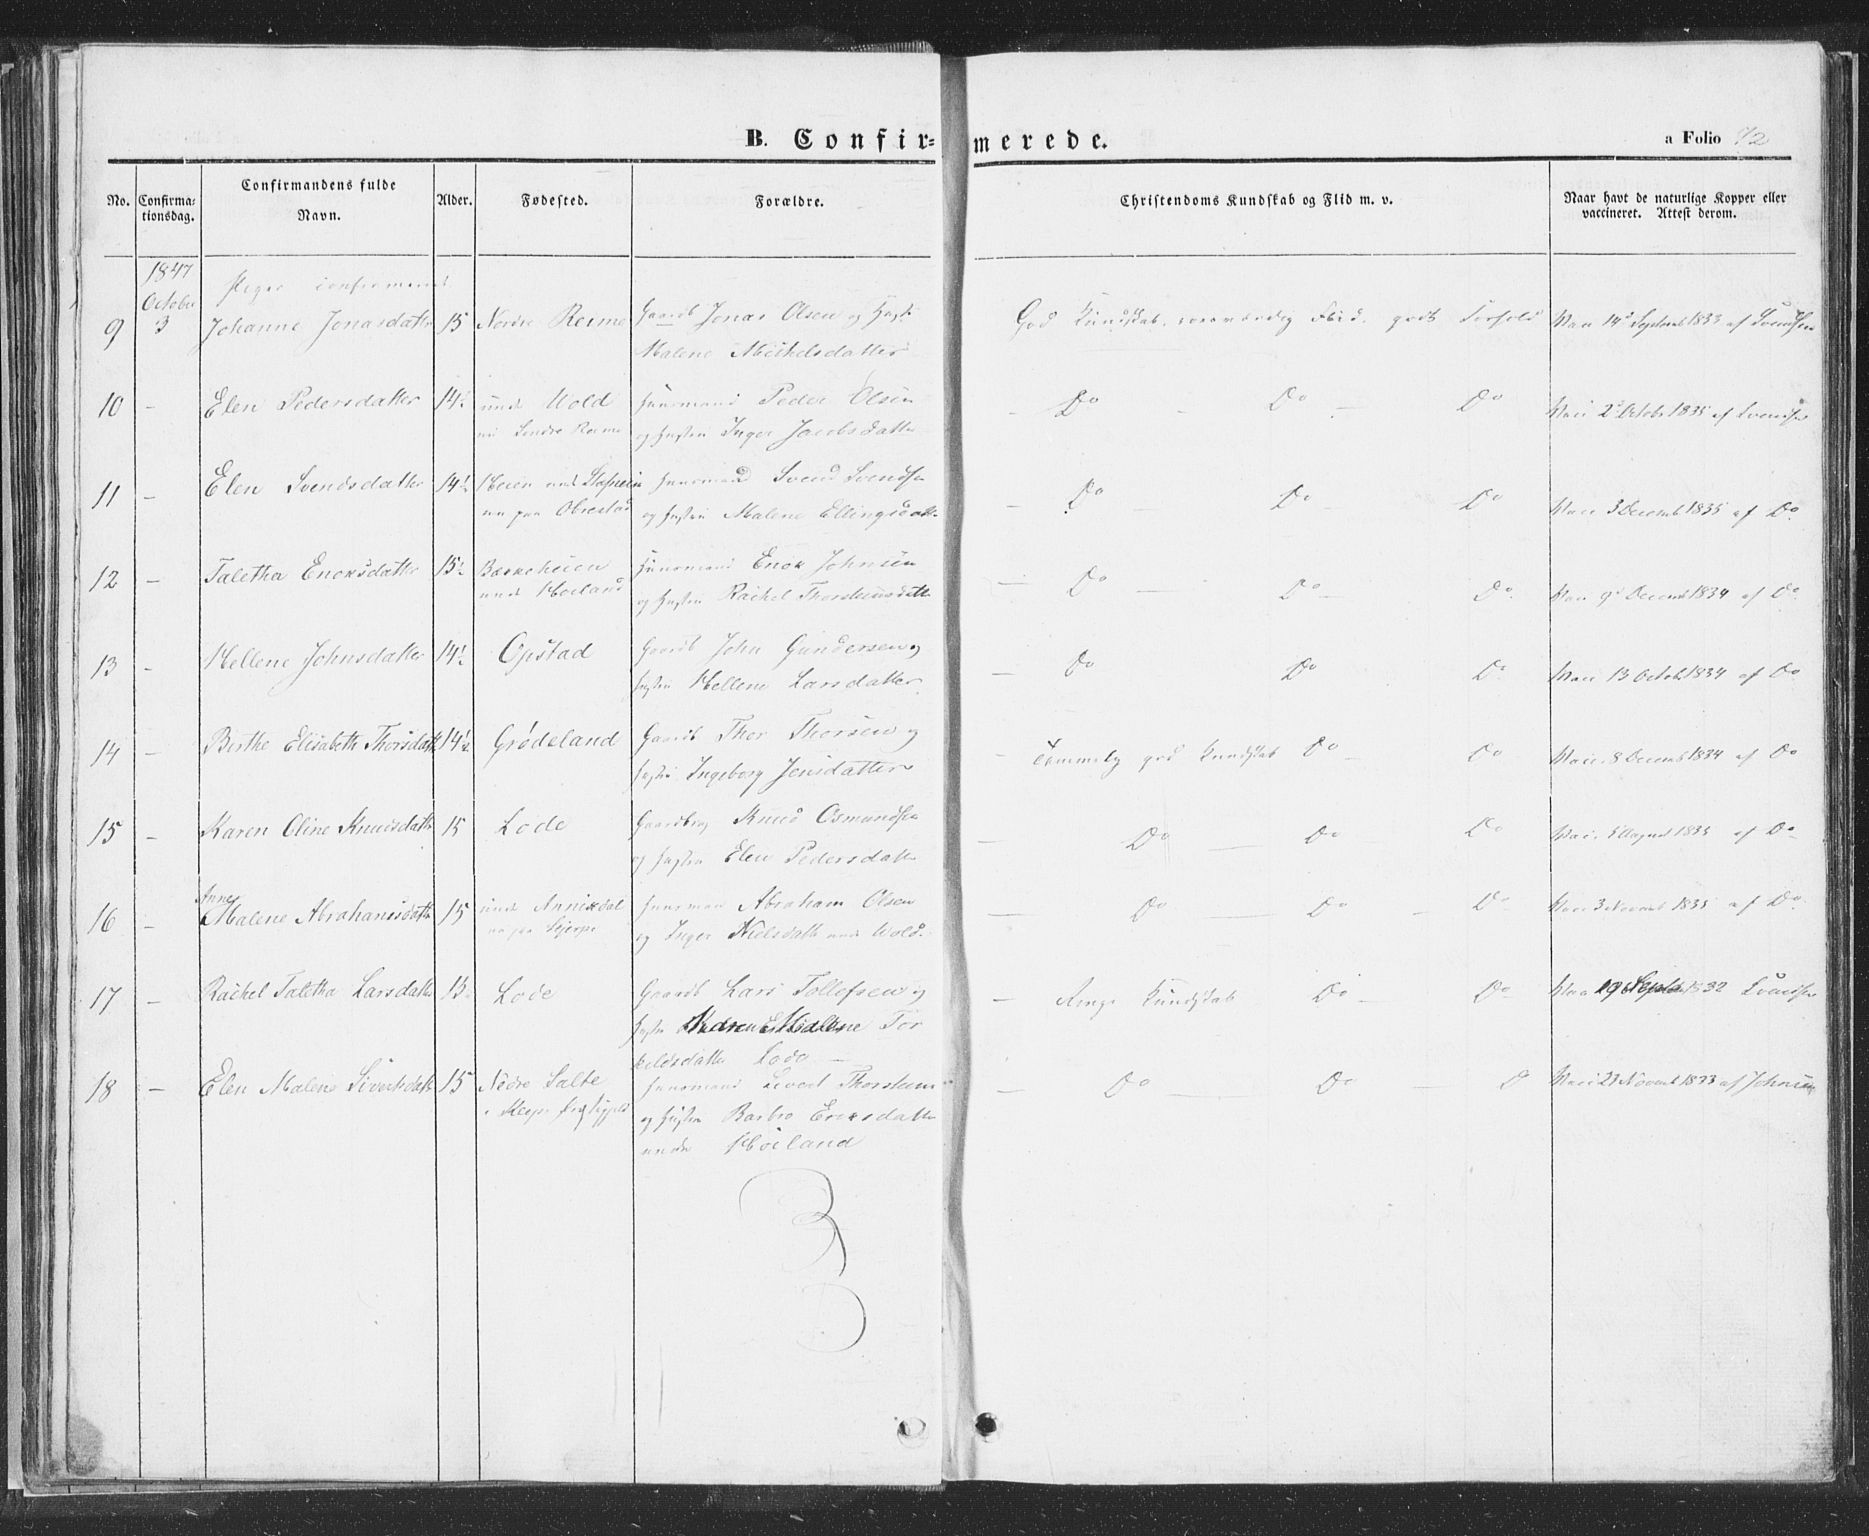 B. Confir-
merede.
a Folio 72
No.
Confirma-
tionsdag.
Confirmandens fulde
Navn.
Alder.
Fødested.
Forældre.
Christendoms Kundskab og Flid m. v.
Naar havt de naturlige Kopper eller
vaccineret. Attest derom.
1847
October
3
Piger confirmered
9 Johanne Jonasdatter 15 Nordre Reime Gaardb Jonas Olsen og Hustr
Malene Michelsdatter
God Kundskab, Flid, godt Forhold Vacc 14d Septemb 1833 af Svendsen
10 - Elen Pedersdatter 14½ under Wold Huusmand Peder Olsen
nu Søndre Reime og Hustru Inger Jacobsdatter
- Do - Do - Do Vacc 2d Octobr 1835 af Svendsen
11 - Elen Svendsdatter 14½ Heien und Huusmand Svend Svendsen
nu paa Obrestad og Hustru Malene Ellingsdatter
- Do - Do - Do Vacc 3 Decemb 1835 af Do
12 - Taletha Enoksdatter 15½ under Høiland Huusmand Enok Johnsen
og Hustru Rachel
- Do - Do - Do Vacc 9d Decemb 1834 af Do
13 - Hellene Johnsdatter 14½ Opstad Gaardb John Gundersen og
Hustru Hellene Larsdatter
- Do Do Do Vacc 13 Octob 1834 af Do
14 - Berthe Elisabeth Thorsdatt 14½ Grødeland Gaardb Thor Thorsen og
Hustru Ingeborg Jensdatter
- Temmelig god Kundskab Do - Do Vacc. 8 Decemb 1834 af Do
15 - Karen Oline Knudsdatt 15 Lode Gaardbrug Knud Osmundsen
og Hustru Elen Pedersdatter
- Do - Do - Do Vacc. August 1835 af Do
16 - Anne
Malene Abrahamsdatt 15 under Annisdal Huusman Abraham Olsen
nu paa og Inger Nielsdatt under Wold.
- Do - Do - Do Vacc 3 Novemb 1835 af Do
17 - Rachel Taletha Larsdatter Lode Gaardb Lars Tollefsen og
Hustru Malene Tor
keldsdatter Lode -
- Ringe Kundskab Do - Do Vacc 19 Septb 1832 Svendsen
18 - Elen Malene Sivertsdatt 15 Nedre Salte Huusmand Sivert
og Hustru Barbro Eriksdatter
under Høiland
- Do - Do - D Vacc 23 Novemb 1833 af Johnsen